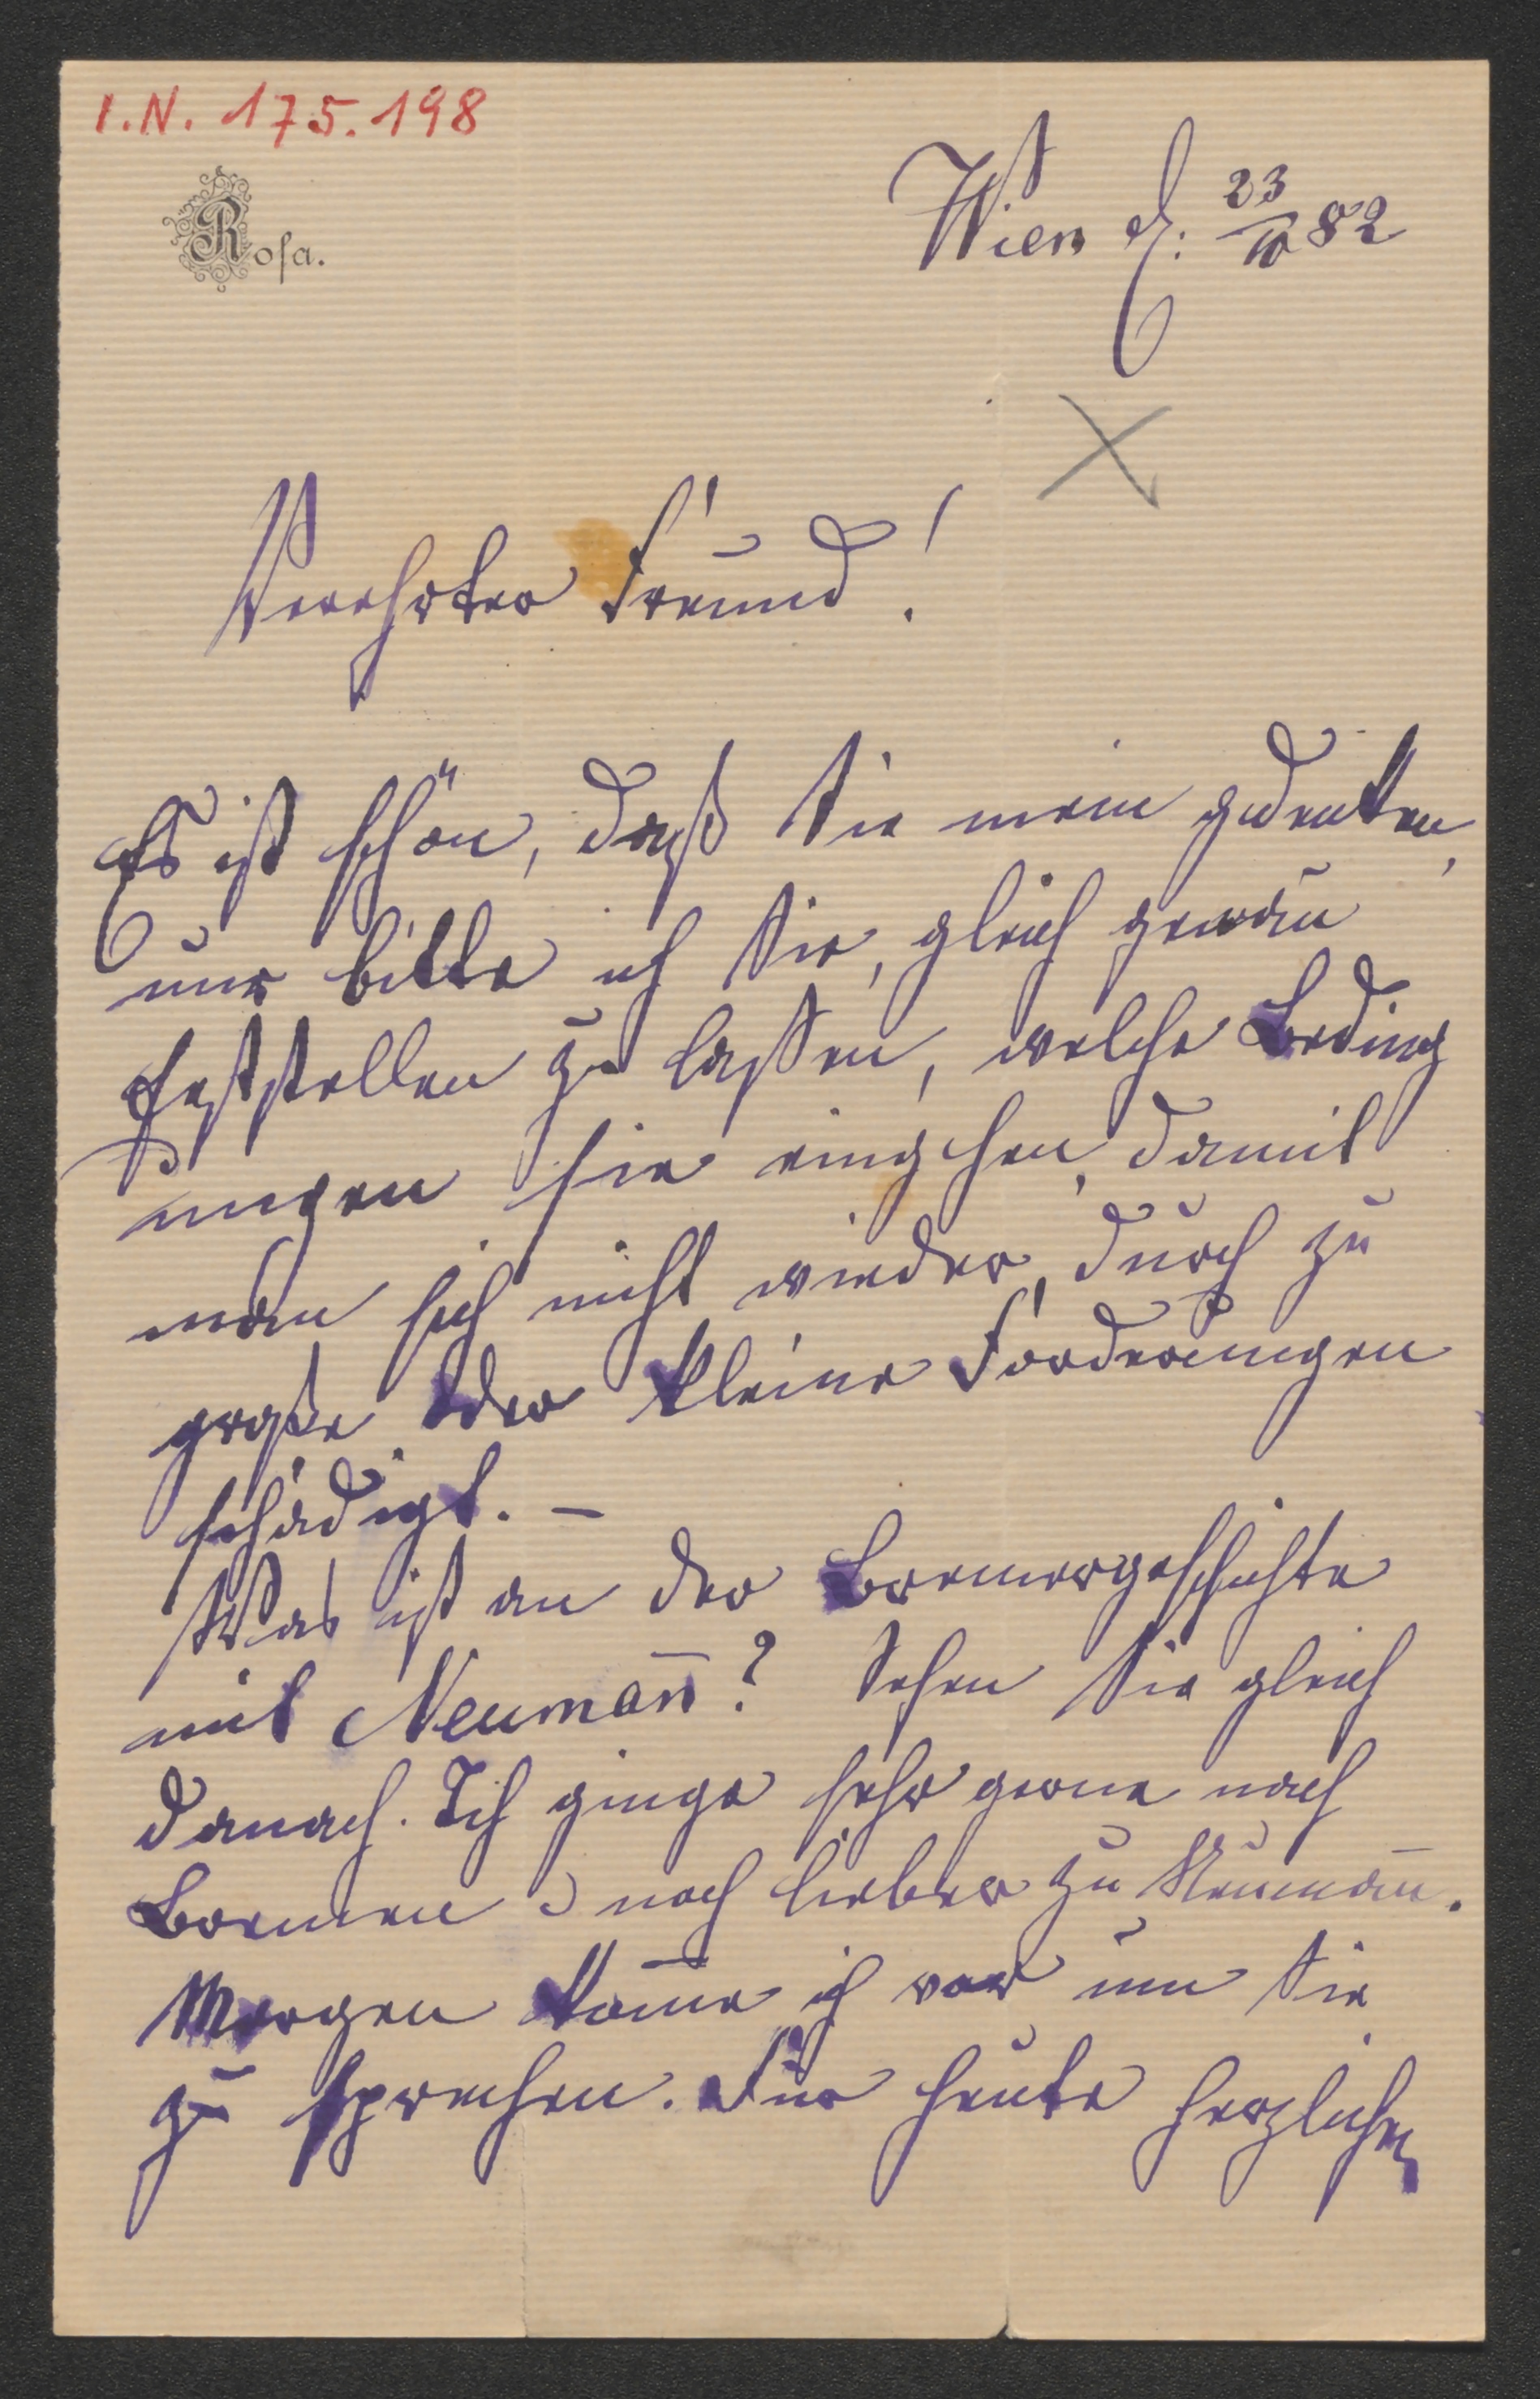 I.N. 175.198
Rosa.
Wien d. 23/10 82
Verehrter Freund!
Es ist schön, daß Sie mein gedenken,
nur bitte ich Sie, gleich genau
feststellen zu laßen, welche Beding
ungen sie eingehen, damit
man sich nicht wieder, durch zu
große oder kleine Forderungen
schädigt. –
Was ist an der Bremergeschichte
mit Neumañ? Sehen Sie gleich
danach. Ich ginge sehr gerne nach
Bremen u noch lieber zu Neumañ.
Morgen kom̄e ich vor um Sie
zu sprechen. Für heute herzlichen